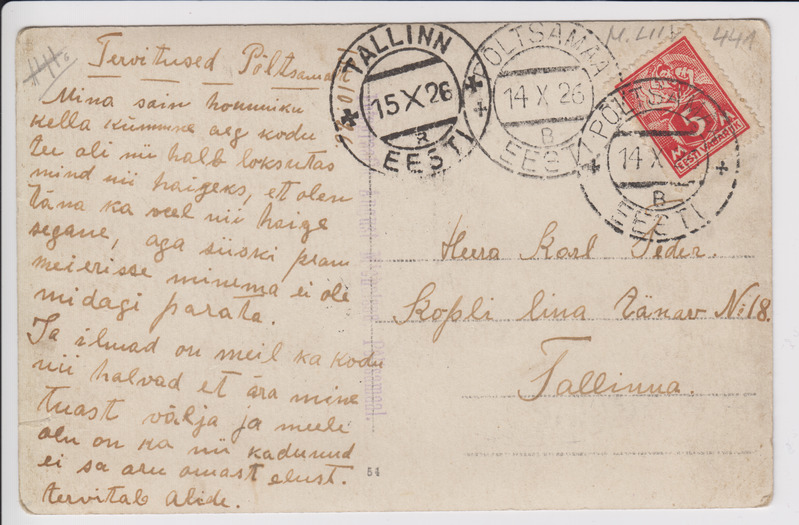 Tervitused Põltsamaalt
Mina sain hommiku
kella kümme aeg kodu
tee oli nii halb loksutas
mind nii haigeks, et olen
täna ka veel nii haige
segane, aga siiski pram
meierisse minema ei ole
midagi parata.
Ja ilmad on meil ka kodu
nii halvad et ära mine
tuast välja ja meeli
olu on ka nii kadunud
ei sa aru omast elust.
tervitab Alide.
TALLINN
15 X 26
EESTI
PÕLTSAMAA
14 X 26
B
EESTI
PÕLTSAMAA
14 X
B
EESTI
5 M
EESTI VABARIIK
441
Herra Karl Seder.
Kopli lina tänav No 18.
Tallinna.
54